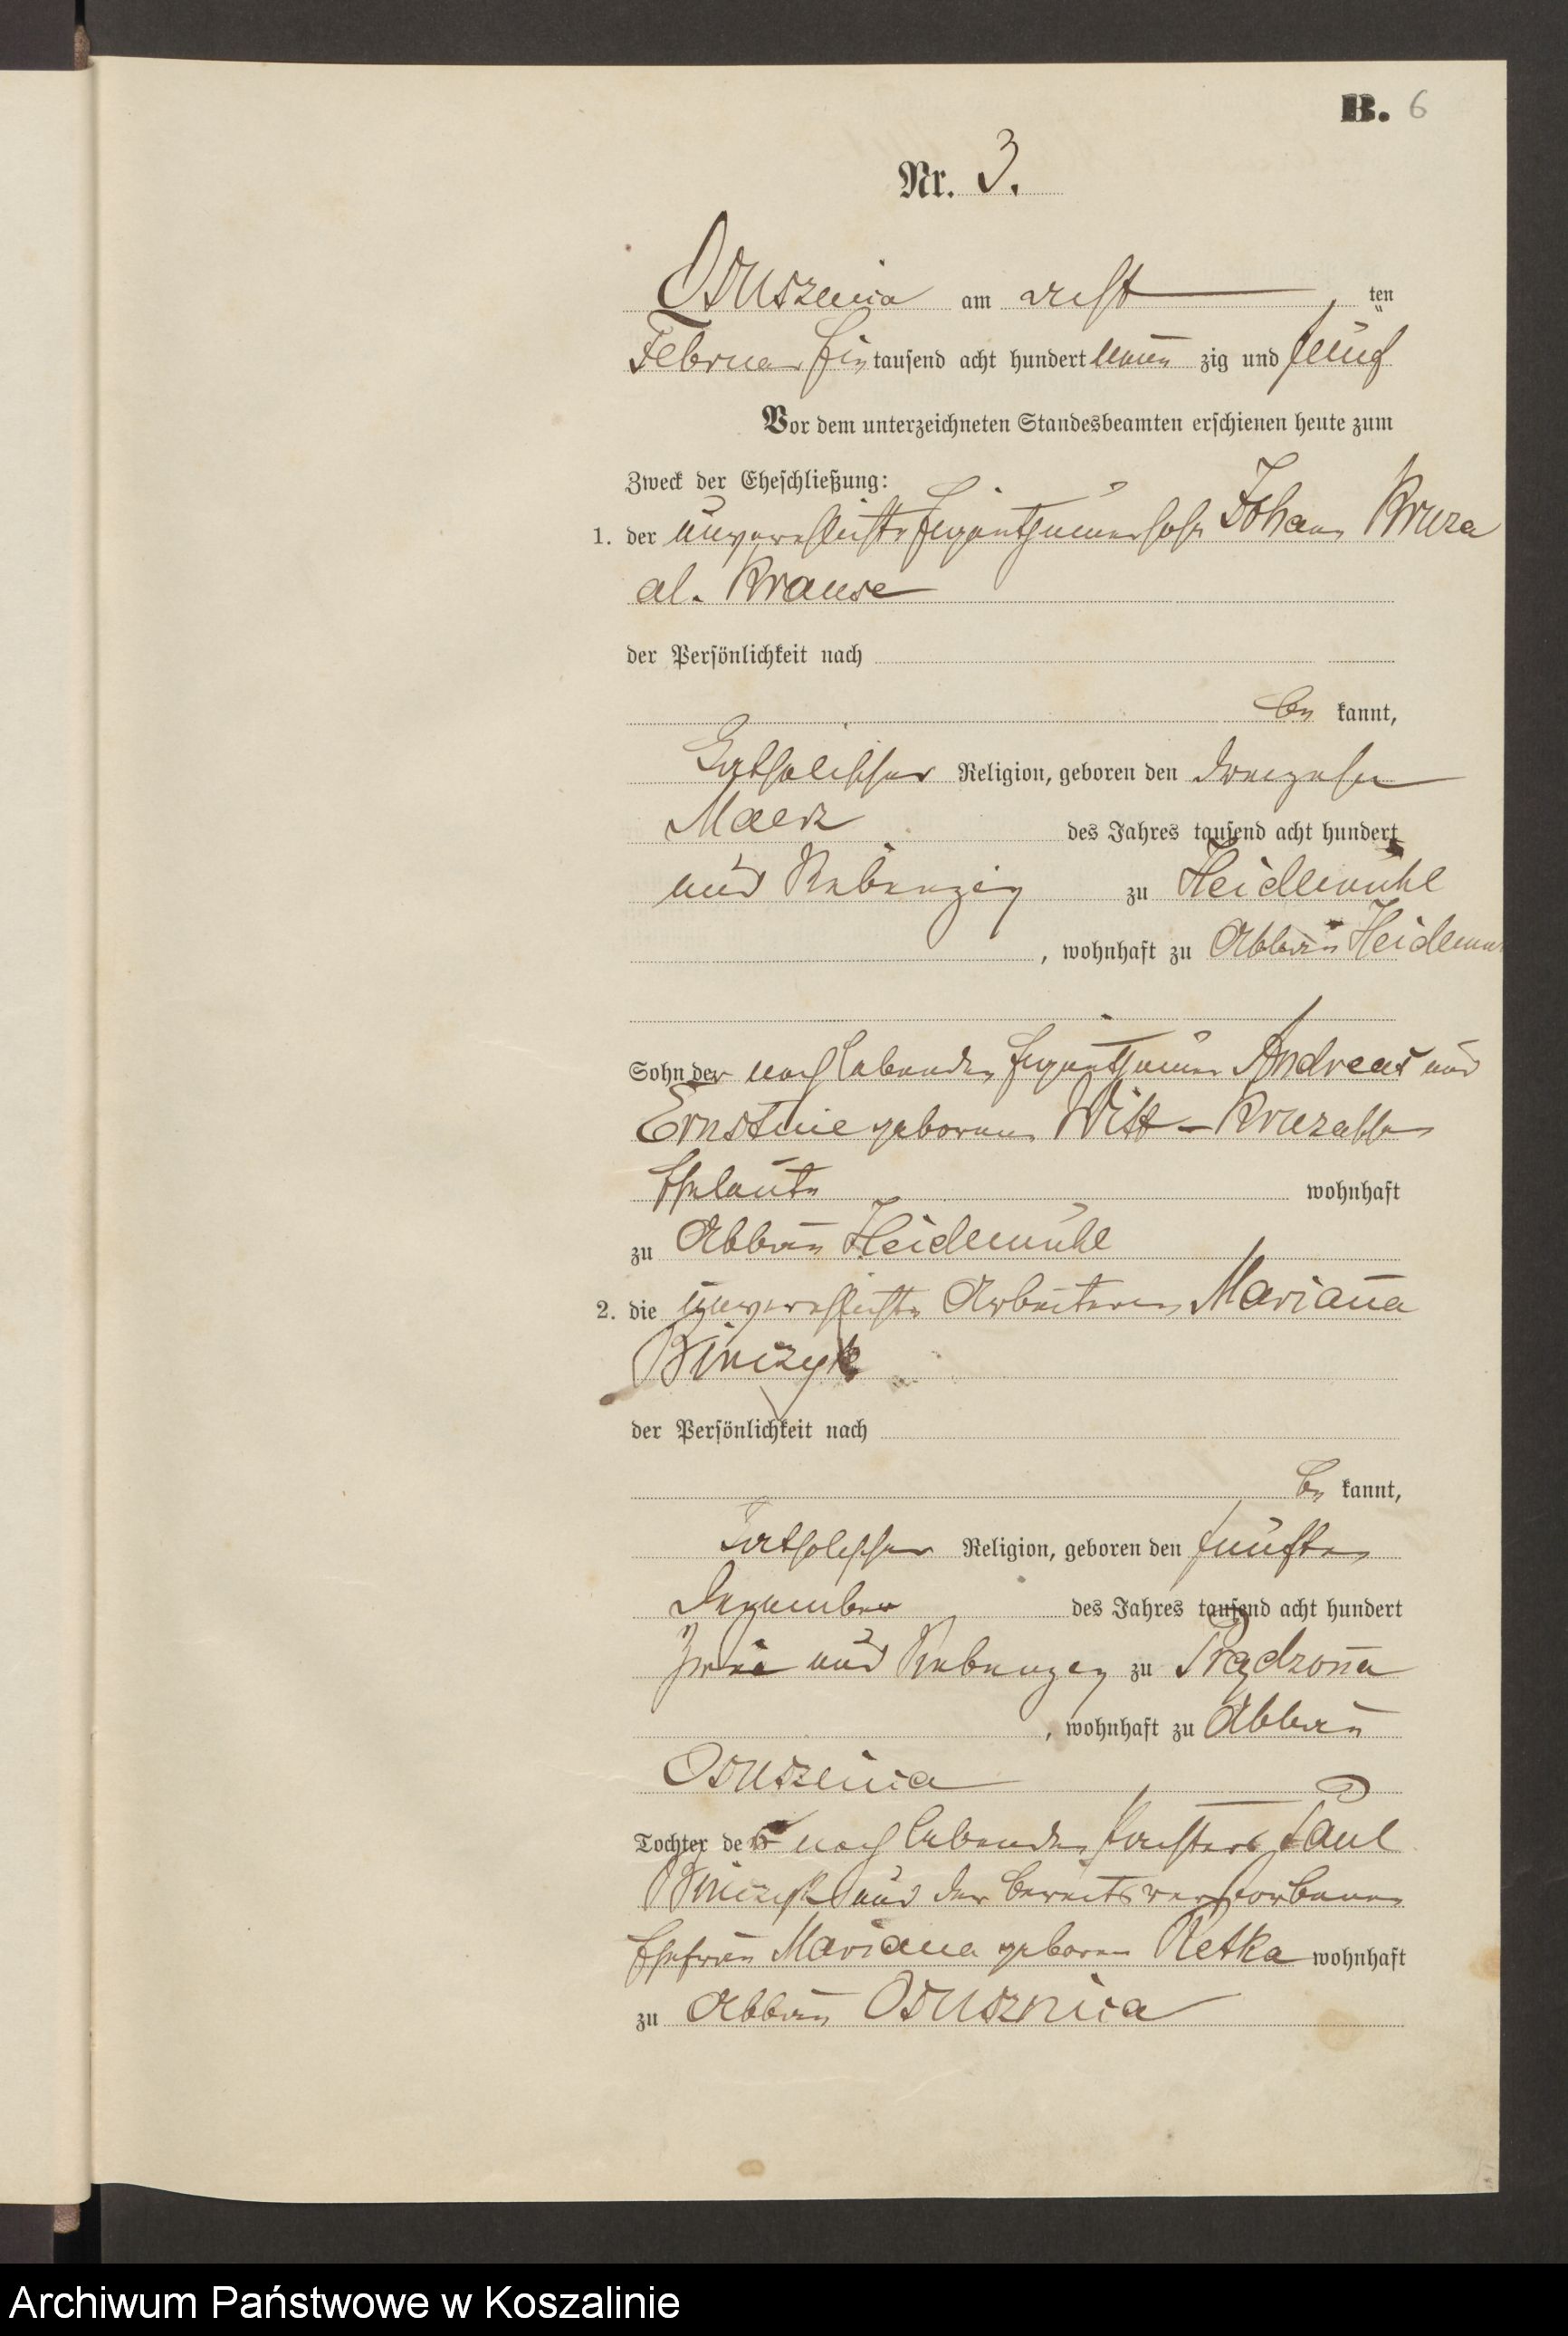 B. 6
Nr. 3.
Osuszenica am acht ten
Februar Ein tausend acht hundert neun zig und fünf
Vor dem unterzeichneten Standesbeamten erschienen heute zum
Zweck der Eheschließung:
1. der unverehlichte Eigenthümersohn Johann Kruza
al. Krause
der Persönlichkeit nach
be kannt,
katholischer Religion, geboren den dreizehn
Maerz des Jahres tausend acht hundert
und siebenzig zu Heidemühl
, wohnhaft zu Abbau
Sohn der noch lebenden Eigenthümer Andreas und
Ernstine geborene Witt - Kruzaschen
Eheleute wohnhaft
zu Abbau Heidemühl
2. die unverehlichte Arbeiterin Marianna
Binczyk
der Persönlichkeit nach
be kannt,
katholischer Religion, geboren den fünften
Dezember des Jahres tausend acht hundert
Zwei und siebenzig zu Prądzonna
, wohnhaft zu Abbau
Osuszenica
Tochter des noch lebenden Försters Paul
Binczyk und der bereits verstorbenen
Ehefrau Marianna geborene Retka wohnhaft
zu Abbau Osusznica
Archiwum Państwowe w Koszalinie